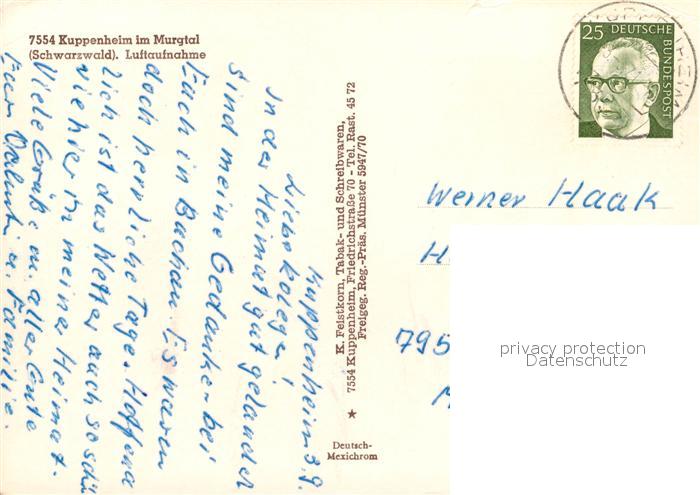 7554 Kuppenheim im Murgtal
(Schwarzwald). Luftaufnahme
25 DEUTSCHE
BUNDESPOST
Kuppenheim 3.9.
Liebe Kolegen!
In der Heimat gut gelandet
sind meine Gedanken bei
Euch in Buchau. Es waren
doch herrliche Tage. Hoffent
lich ist das Wetter auch so schön
wie hier in meiner Heimat.
Viele Grüße an alle Leute
Euer Valentin u. Familie.
K. Feistkorn, Tabak- und Schreibwaren,
7554 Kuppenheim, Friedrichstraße 70 - Tel. Rast. 45 72
Freigeg. Reg.-Präs. Münster 5947/70
Deutsch-
Mexichrom
Werner Haak
H
795
privacy protection
Datenschutz